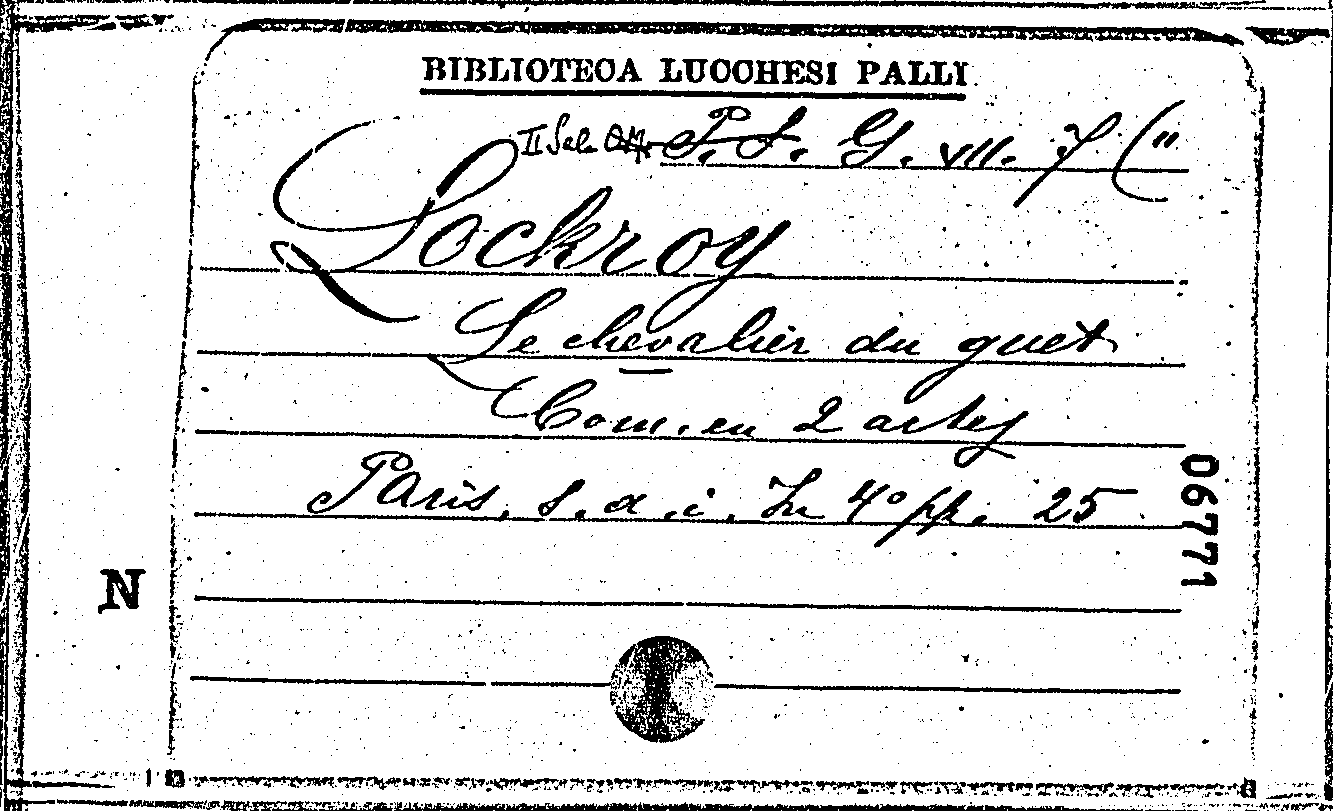 BIBLIOTECA LUCCHESI PALLI
II Sala P. S. G. VII. 7 ("
Lockroy
Le chevalier du guet
Com. en 2 actes
Paris, s. d. i. In 4° pp. 25
06771
N